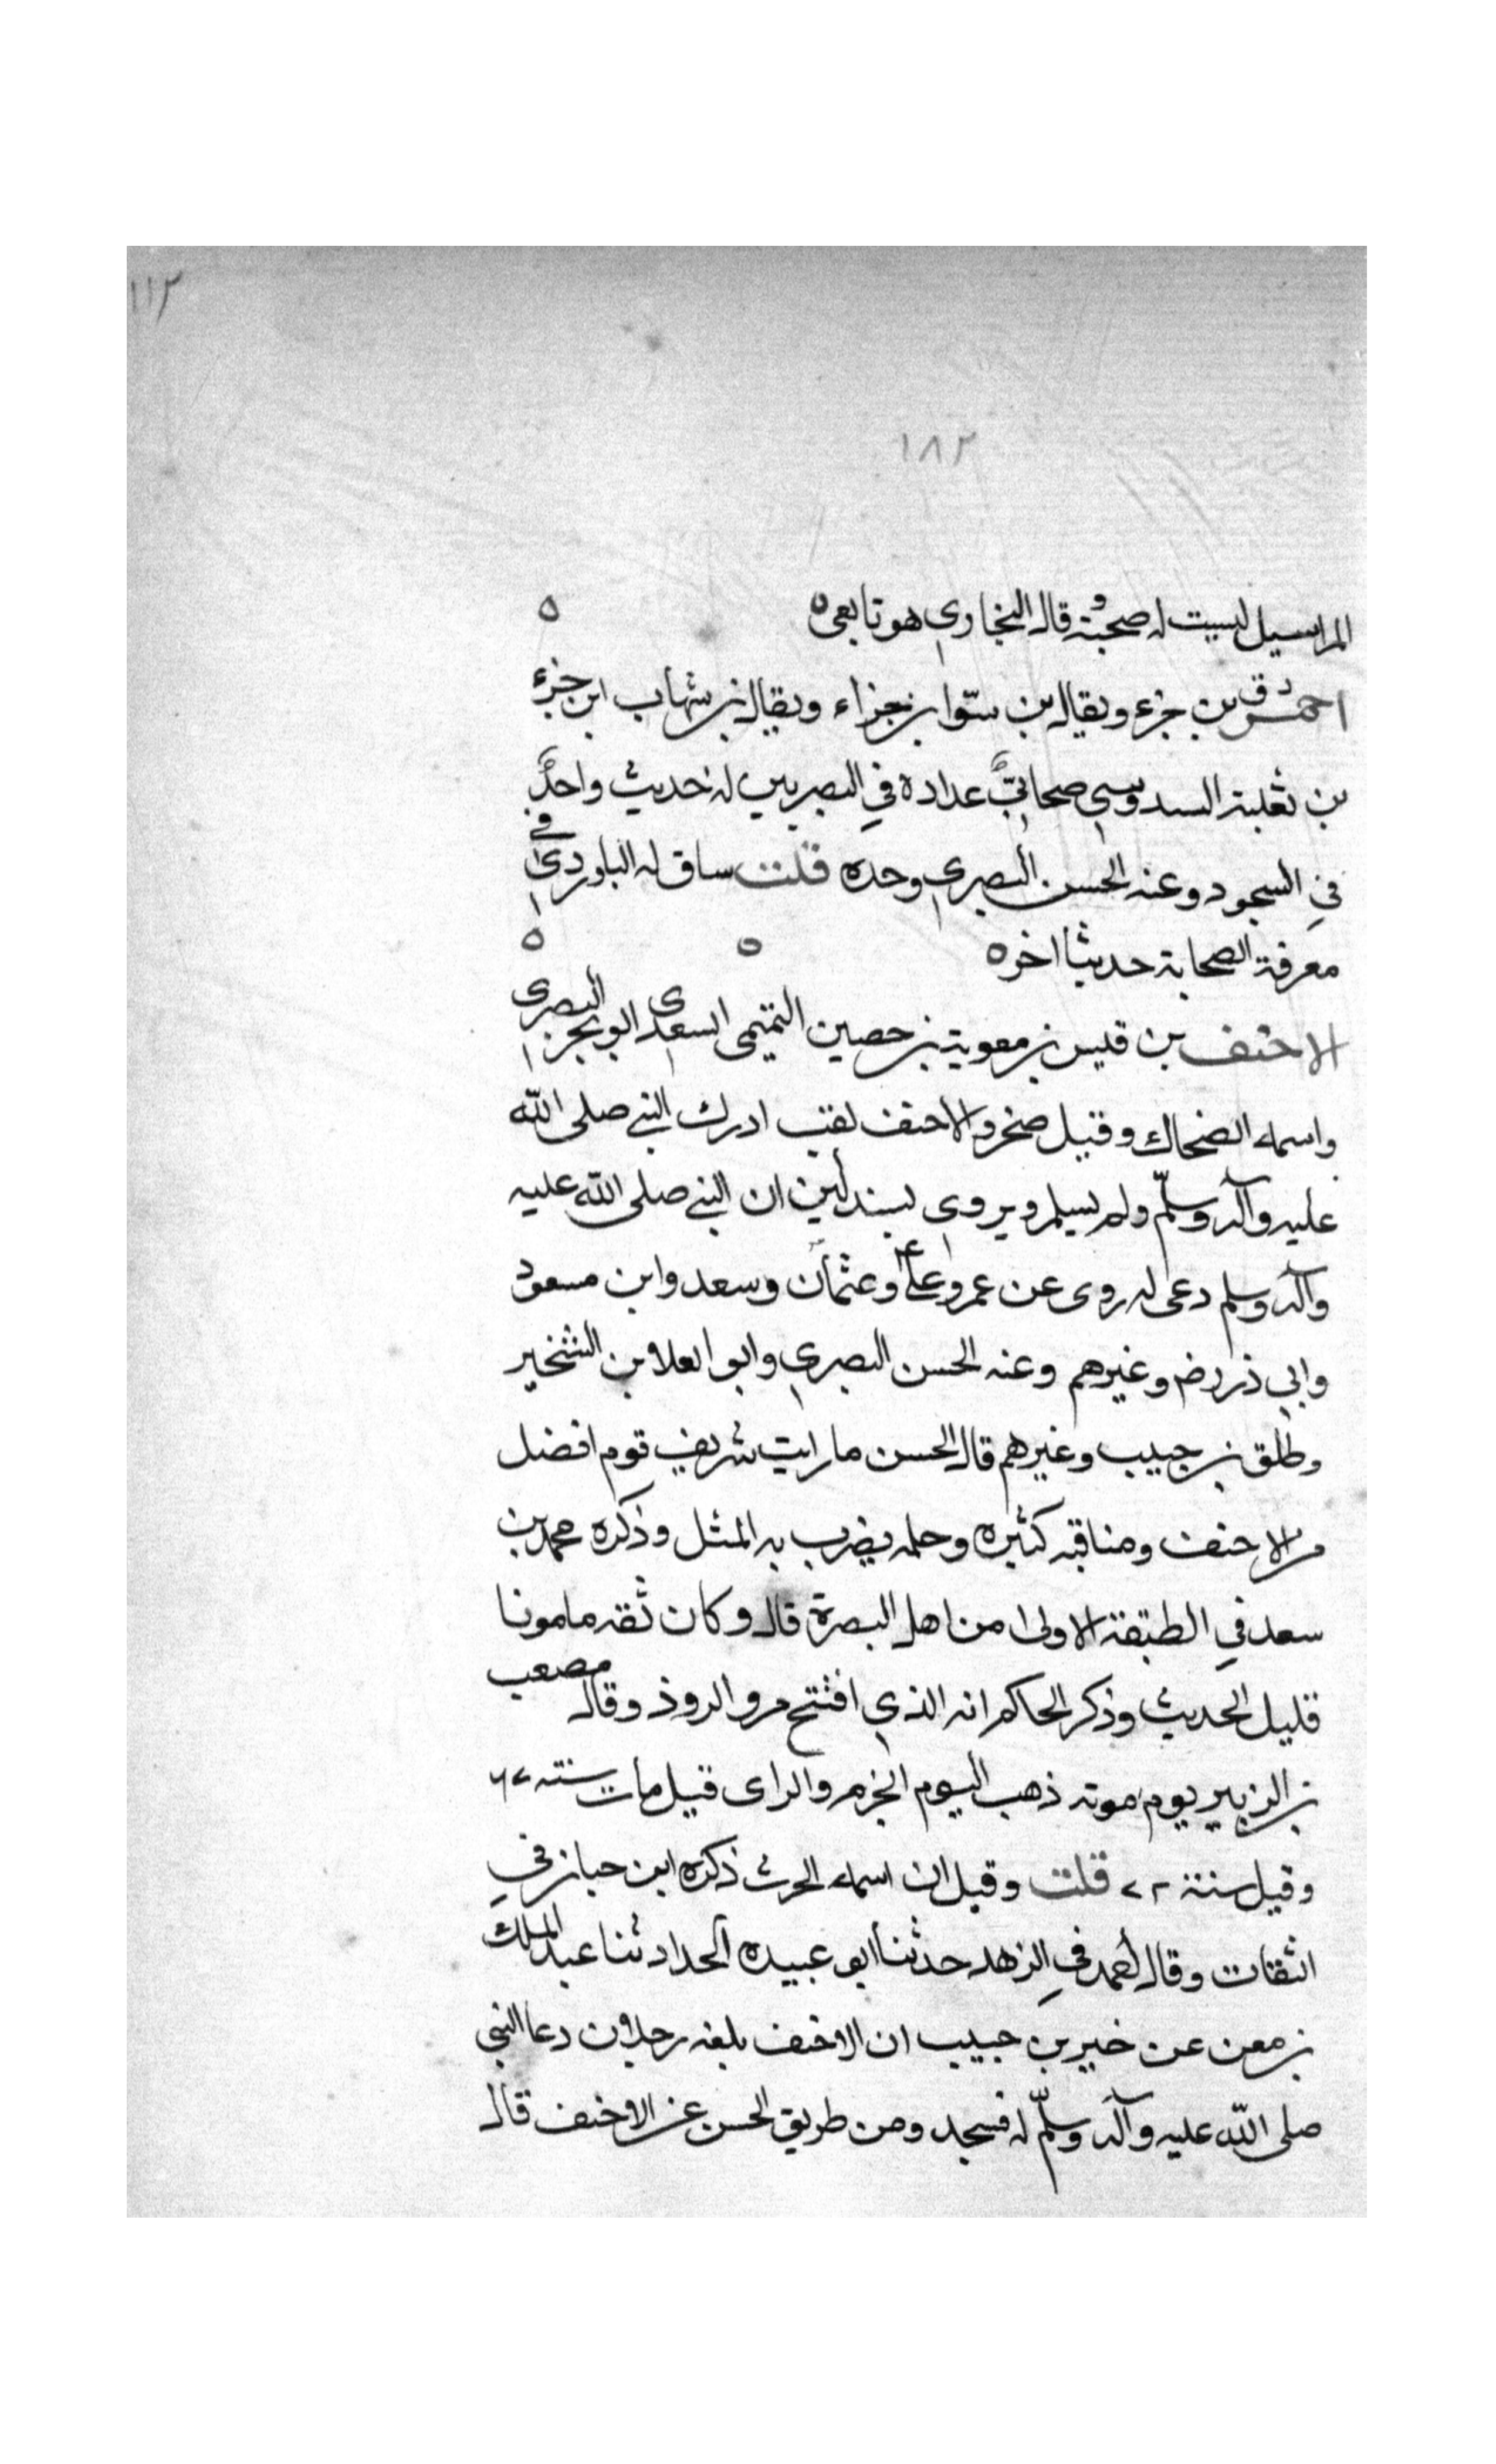 ١١٢
١٨٢
المراسيل ليست له صحبة وقال البخاري هو تابعي ه ه
احمر دق بن جزء ويقال بن سوا بن جزاء ويقال بن شهاب ابن جزء
بن ثعلبة السدوسي صحابيّ عداده في البصريين له حديث واحد
في السجود وعنه الحسن البصري وحده قلت ساق له الباوردي في
معرفة الصحابة حديثا اخر ه ه ه
الاحنف بن قيس بن معوية بن حصين التميمي السعدي ابو بحر البصري
واسمه الضحاك وقيل صخر والاحنف لقب ادرك النبي صلى الله
عليه وآله وسلّم ولم يسلم ويروى بسند لين ان النبي صلى الله عليه
وآله وسلم دعى له روى عن عمر وعلي وعثمان وسعد وابن مسعود
وابي ذر رض وغيرهم وعنه الحسن البصري وابو العلا بن الشخير
وطلق بن حبيب وغيرهم قال الحسن ما رايت شريف قوم افضل
من الاحنف ومناقبه كثيره وحلمه يضرب به المثل وذكره محمد بن
سعد في الطبقة الاولى من اهل البصرة قال وكان ثقه مامونا
قليل الحديث وذكر الحاكم انه الذي افتتح مرو الروذ وقال مصعب
بن الزبير يوم موته ذهب اليوم الحزم والراى قيل مات سنته ٦٧
وقيل سنة ٧٢ قلت وقيل ان اسمه الحرث ذكره ابن حبان في
الثقات وقال احمد في الزهد حدثنا ابو عبيده الحداد ثنا عبد الملك
بن معن عن خير بن حبيب ان الاحنف بلغه رجلان دعا النبي
صلى الله عليه وآله وسلّم له فسجد ومن طريق الحسن عن الاحنف قال